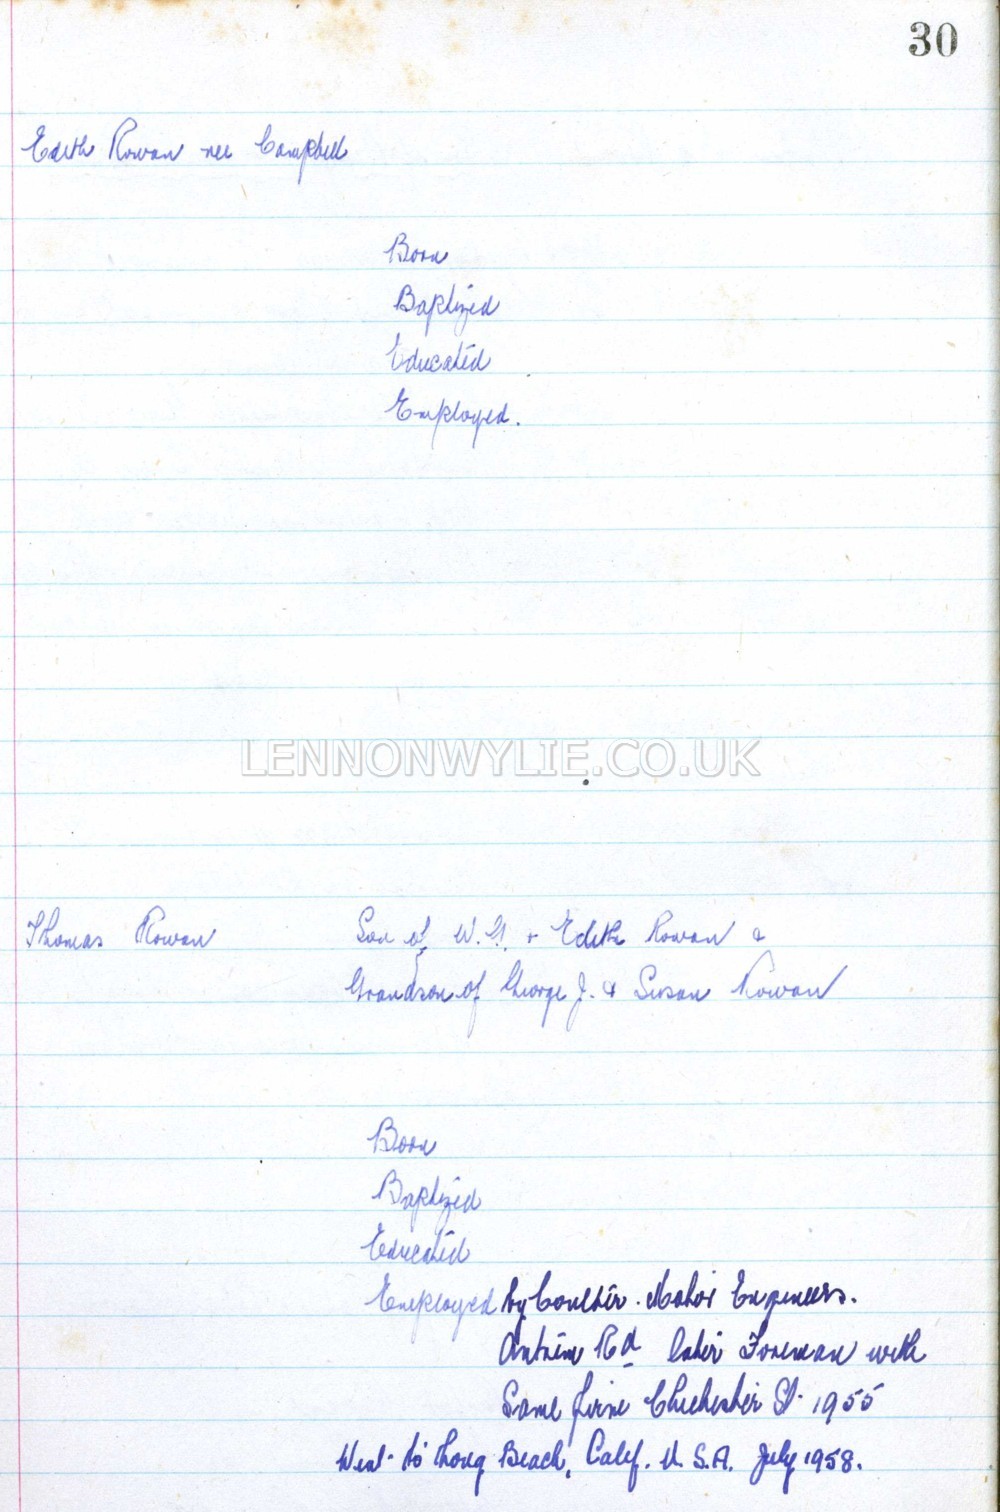 30
Edith Rowan nee Campbell
Born
Baptized
Educated
Employed.
LENNONWYLIE.CO.UK
Thomas Rowan Son of W. G. + Edith Rowan &
Grandson of George J. & Susan Rowan
Born
Baptized
Educated
Employed by Coulter. Motor Engineers.
Antrim Rd later Foreman with
Same firm Chichester St. 1955
Went to Long Beach, Calif. U.S.A. July 1958.